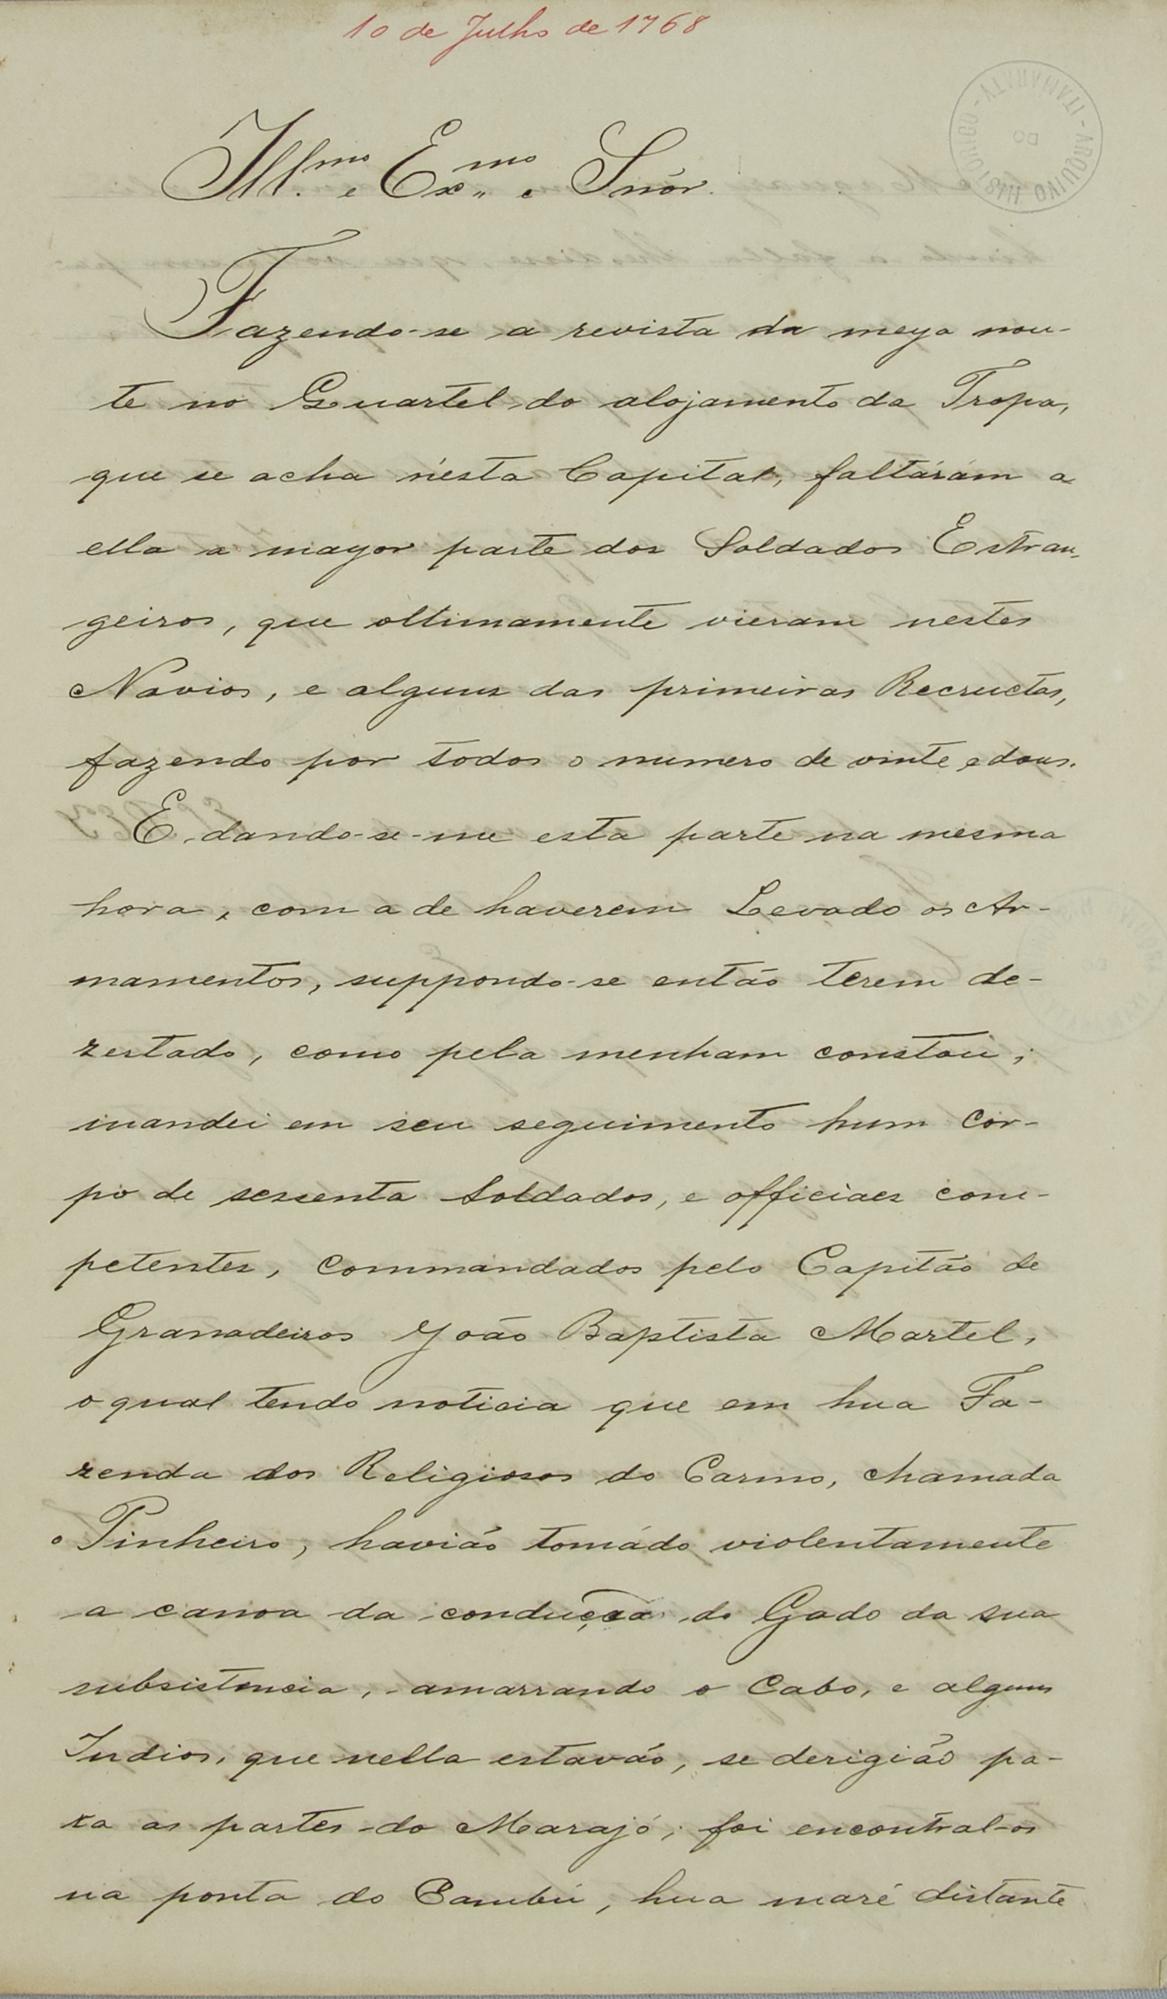 10 de Julho de 1768
ARQUIVO HISTORICO - ITAMARATY -
Ill.mo e Ex.mo Snór.
Fazendo-se a revista da meya nou-
te no Quartel do alojamento da Tropa,
que se acha n'esta Capital, faltáram a
ella a mayor parte dos Soldados Estran-
geiros, que oltimamente vieram nestes
Navios, e alguns das primeiras Recructas,
fazendo por todos o numero de vinte e dous.
E dando-se-me esta parte na mesma
hora, com a de haverem Levado os Ar-
mamentos, suppondo-se então terem de-
zertado, como pela menham constou;
mandei em seu seguimento hum Cor-
po de sessenta Soldados, e officiaes com-
petentes, Commandados pelo Capitão de
Granadeiros João Baptista Martel,
o qual tendo noticia que em hua Fa-
zenda dos Religiosos do Carmo, chamada
o Pinheiro, havião tomádo violentamente
a canoa da conducçaõ do Gado da sua
subsistencia, amarrando o Cabo, e alguns
Indios, que nella estavão, se derigião pa-
ra as partes do Marajó; foi encontral-os
na ponta do Cambú, hua maré distante